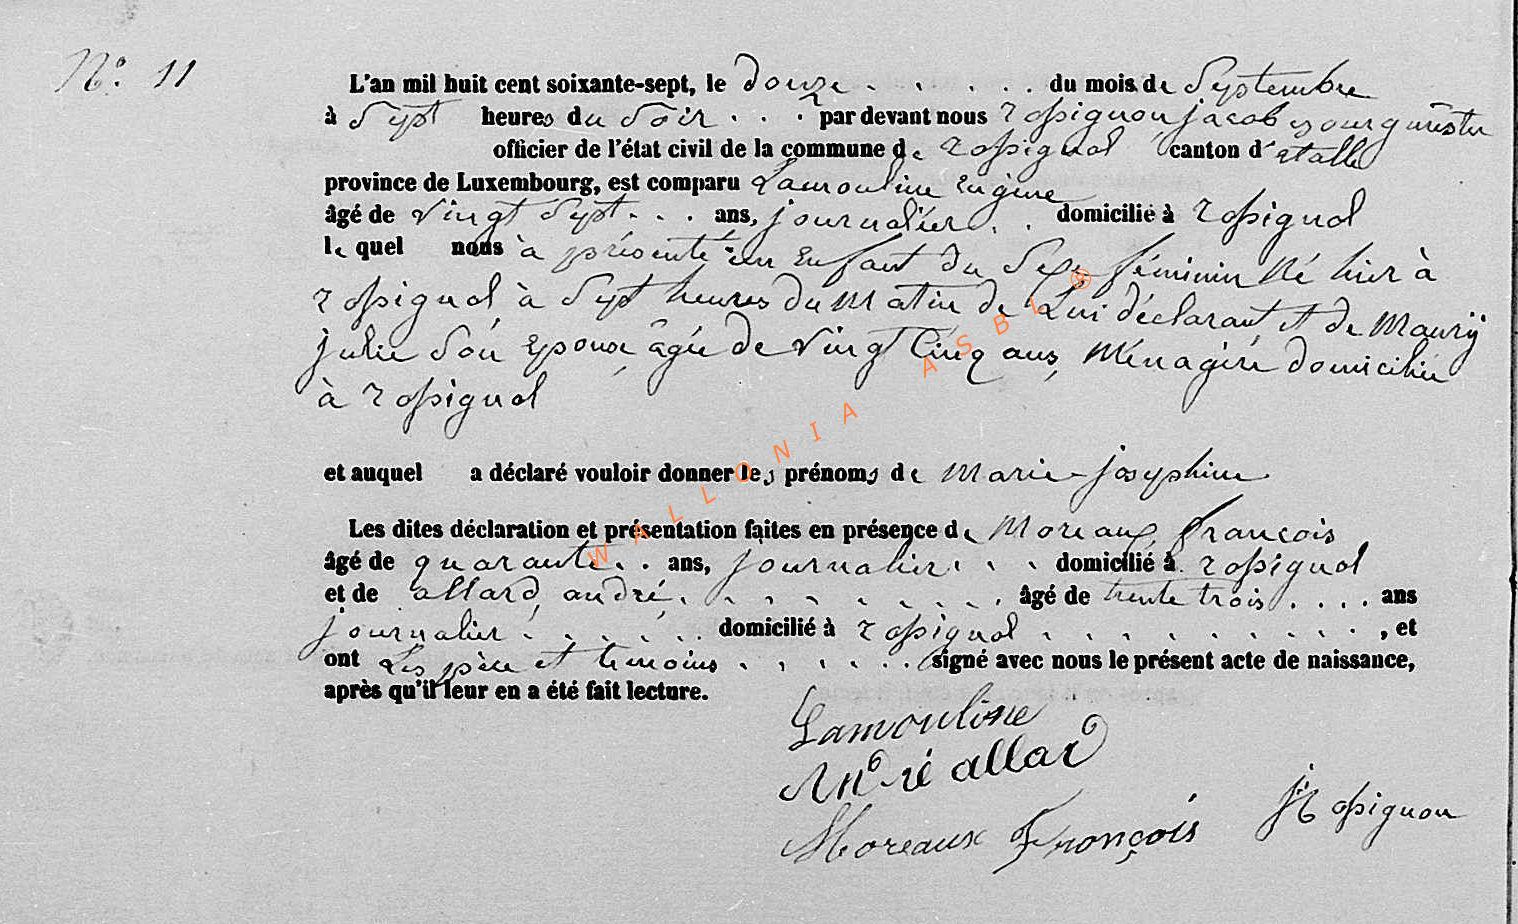 N° 11
L'an mil huit cent soixante-sept, le douze . . . . . du mois de Septembre
à Sept heures du Soir . . . par devant nous Rossignon jacob Bourgmestre
officier de l'état civil de la commune de Rossignol canton d'etalle
province de Luxembourg, est comparu Lamouline Eugène
âgé de vingt Sept . . . ans, journalier . . domicilié à Rossignol
le quel nous à présenté un Enfant du Sexe féminin Né hier à
Rossignol à Sept heures du Matin de Lui déclarant et de Maury
julie Son Epouse âgée de vingt Cinq ans, Ménagère domiciliée
à Rossignol
et auquel a déclaré vouloir donner les prénoms de Marie-josephine
Les dites déclaration et présentation faites en présence de Moreaux, françois
âgé de quarante . . ans, journalier . . . domicilié à Rossignol
et de allard, andré, . . . . . . . . . âgé de trente trois . . . . ans
journalier . . . . . . domicilié à Rossignol . . . . . . . . . . , et
ont Les père et temoins . . . . . . signé avec nous le présent acte de naissance,
après qu'il leur en a été fait lecture.
Lamouline
André allard
Moreaux François
j Rossignon
WALLONIA ASBL ®